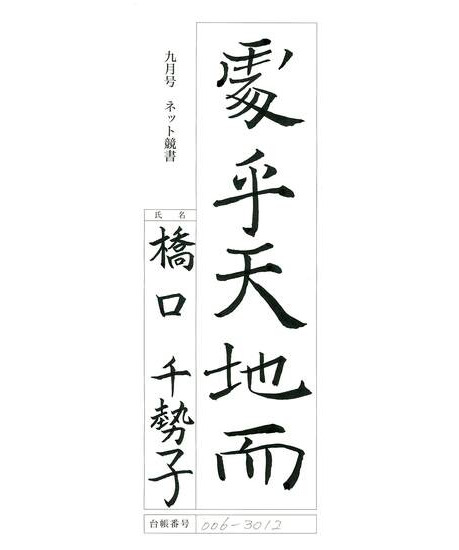 處乎天地而
九月号 ネット競書
氏名
橋口 千勢子
台帳番号 006-3012